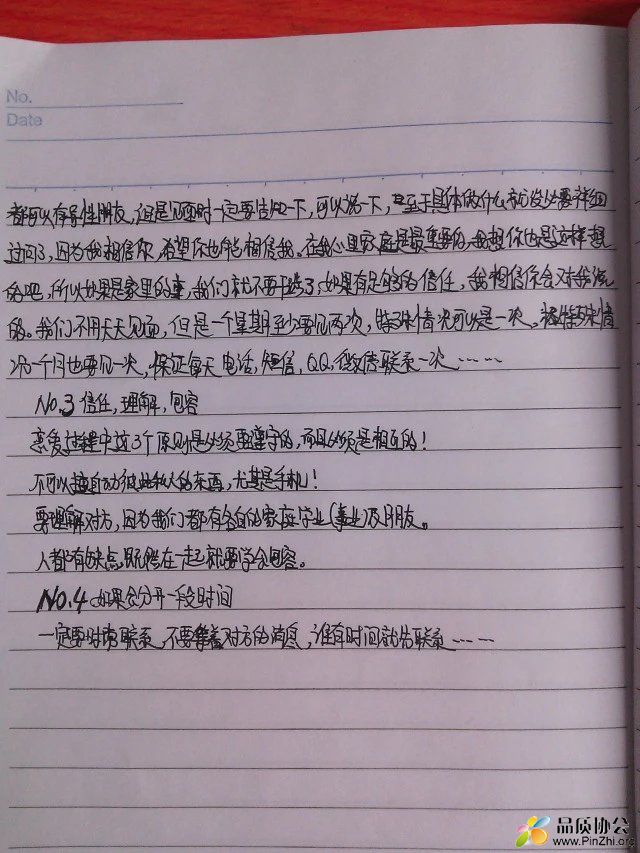 No.
Date
都可以有异性朋友,但是见面时一定要告知一下,可以说一下,至于具体做什么就没必要详细
过问了,因为我相信你,希望你也能相信我。在我心里家庭是最重要的,我想你也是这样想
的吧,所以如果是家里的事,我们就不要干涉了,如果有足够的信任,我相信你会对我说
的。我们不用天天见面,但是一个星期至少要见两次,特殊情况可以是一次。极特殊情
况一个月也要见一次,保证每天电话,短信,QQ,微信联系一次……
No.3 信任,理解,包容
恋爱过程中这3个原则是必须要遵守的,而且必须是相互的!
不可以擅自动彼此私人的东西,尤其是手机!
要理解对方,因为我们都有各自的家庭学业(事业)及朋友。
人都有缺点,既然在一起就要学会包容。
NO.4 如果会分开一段时间
一定要时常联系,不要等着对方的消息,谁有时间就先联系……
品质协会
www.PinZhi.org